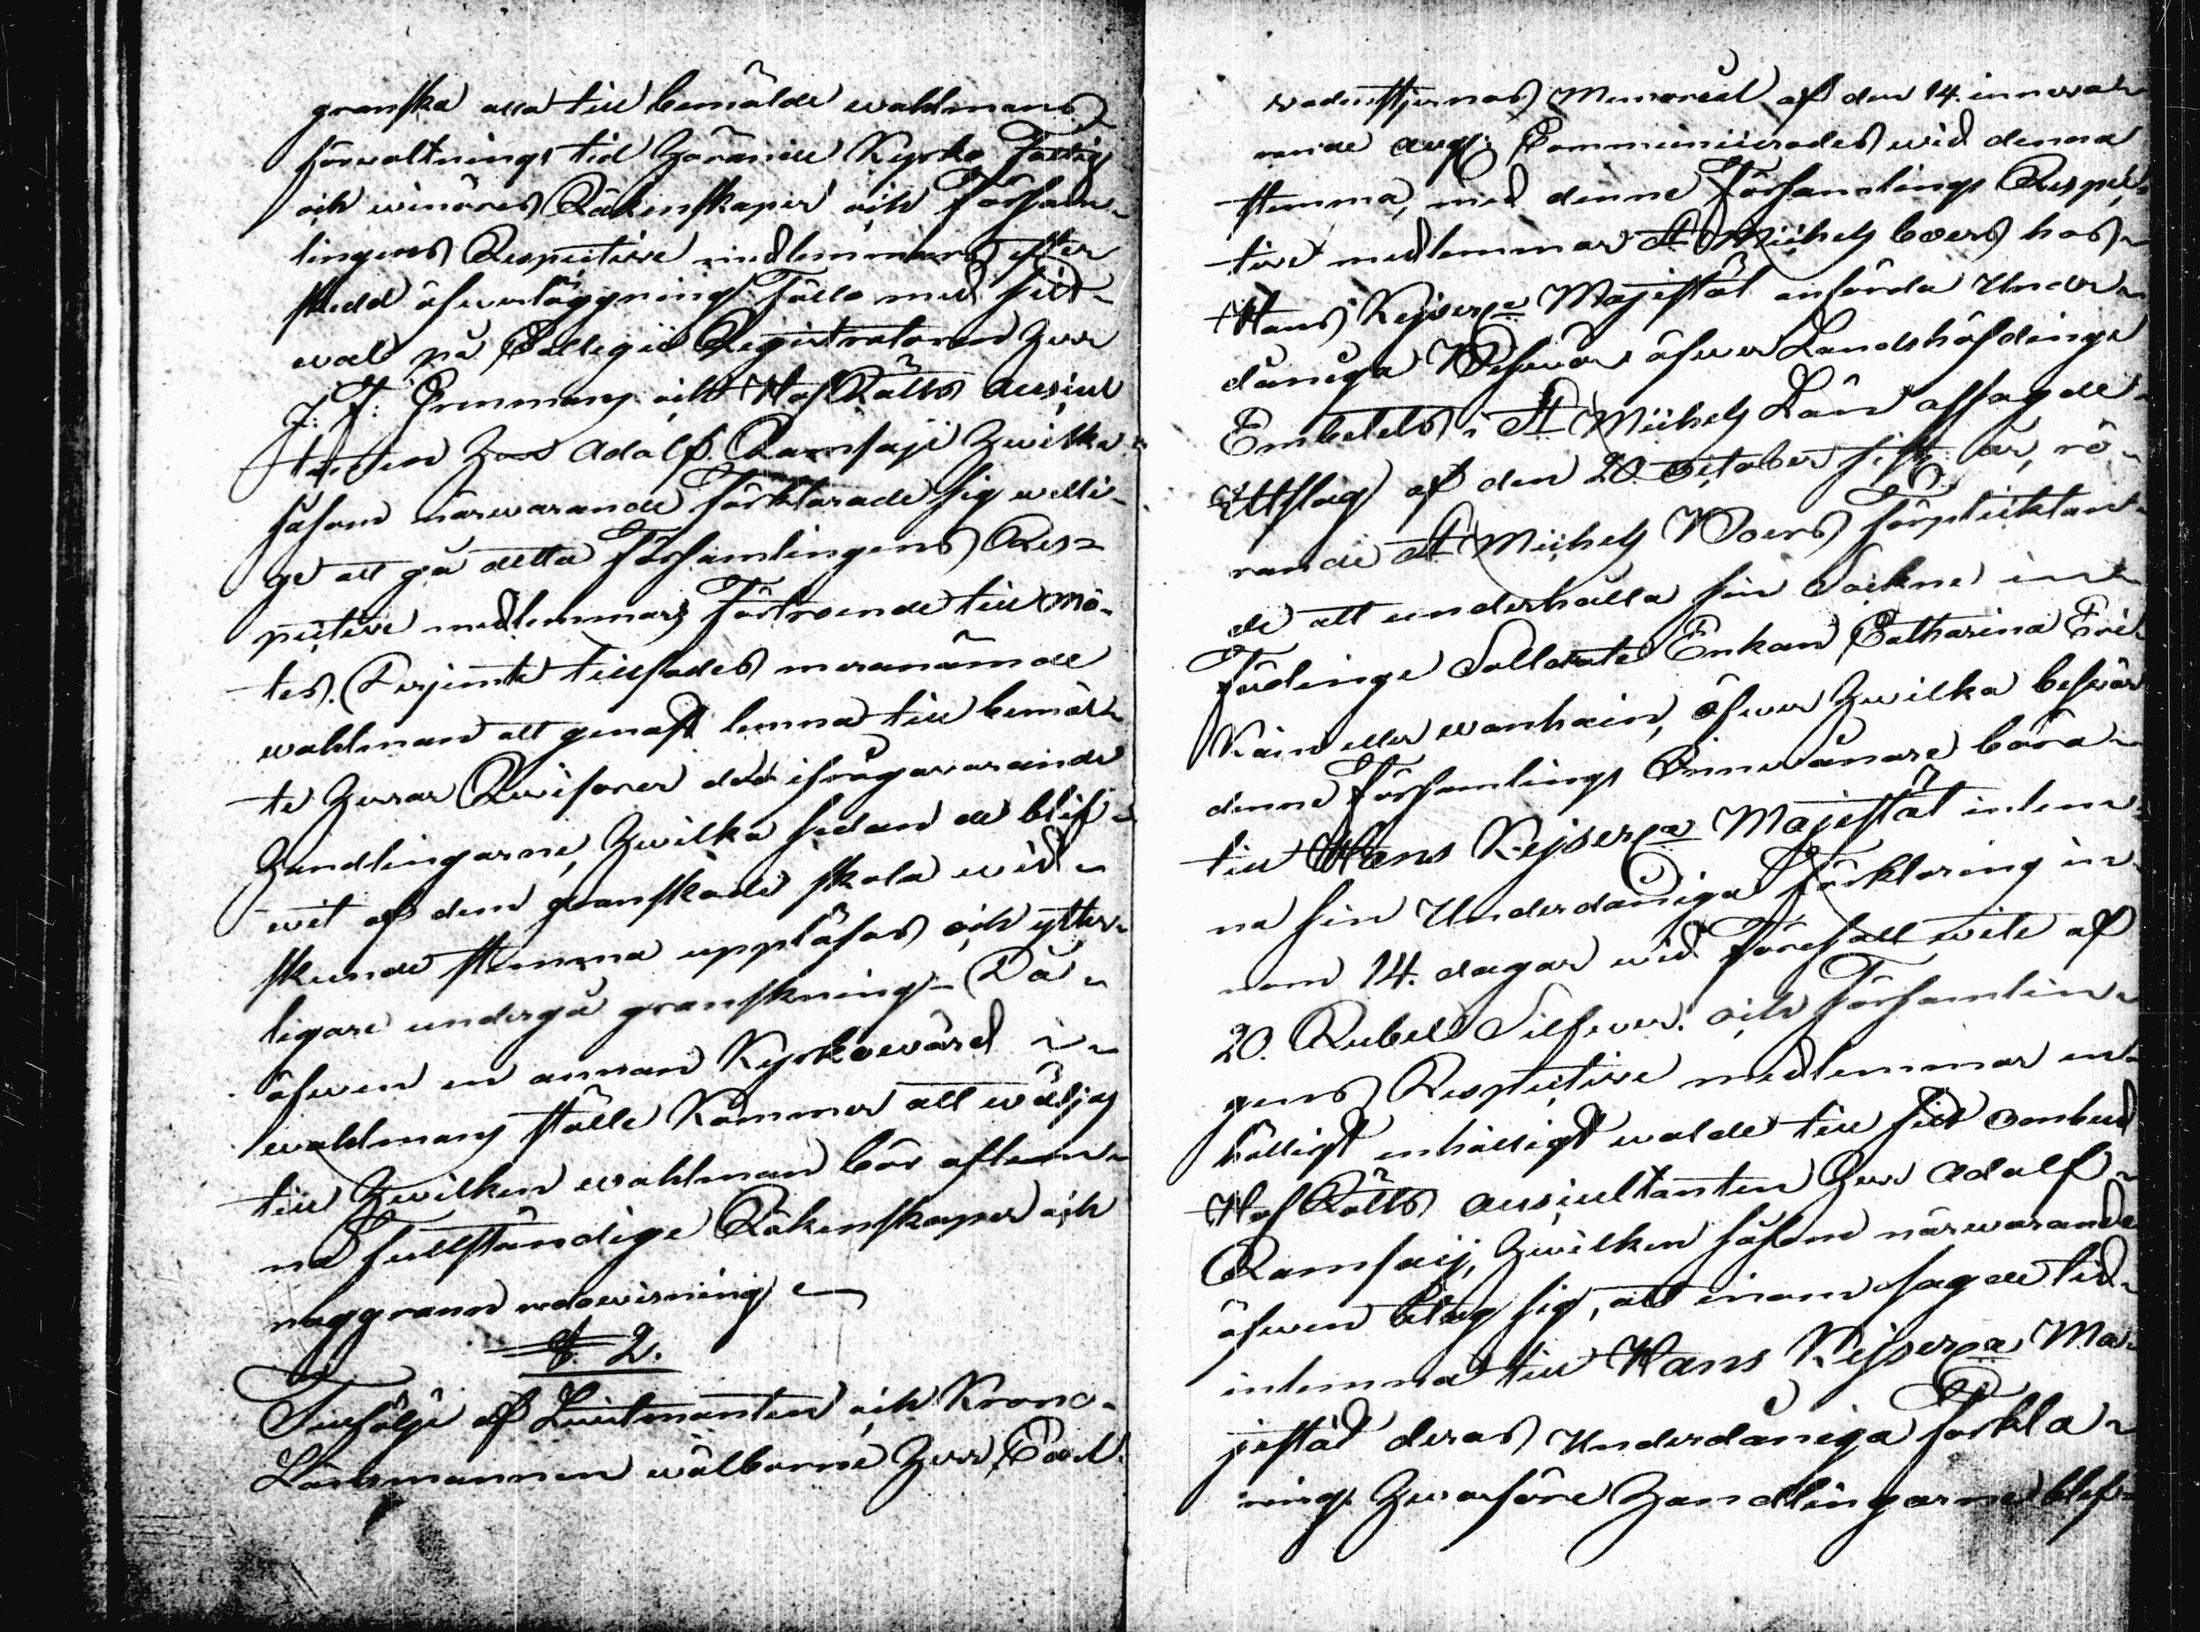 granska alla till bemälde wahlmans
förwaltnings tid hörande Kyrko Fattig
och winöres Räkenskaper och Försam-
lingens Respective medlemmars efter
skedd öfwerläggning fälla med sitt
wal på Collegii Registratoren Herr
J. F. Grenman och HofRätts Auscul
tanten Herr Adolf Ramsaji hwilka
såsom närwarande Förklarade sig willi-
ge att gå detta Församlingens Res-
pective medlemmars Förtroende till mö-
tes. Derjemte tillsades meranämde
wahlman att genast lemna till bemäl-
te Herrar Revisorer de ifrågawarande
Handlingarne, hwilka sedan de blif-
wit af dem granskade skola wid
skeende stemma uppläsas och ytter-
ligare undergå granskning. Då
äfwen en annan Kyrkowärd i
wahlmans ställe Kommer att wäljas
till hwilken wahlman bör aflem-
na fullständige Räkenskaper och
noggrann redowisning
§. 2.
Tillfölje af Lieutnanten och Krono-
Länsmannen wälborne Herr
Memorial af den 14. innewa-
rande Aug: Communicerades wid denna
stemma, med denne Församlings Respec-
tive medlemmar St Michels boers hos
Hans Kejserla Majestät anförda Under-
dåniga Beswär öfwer Landshöfdinge
Embetets i St Michels Län afsagde
Utslag af den 20. October sistl. år, rö-
rande St Michels Boers förpliktan-
de att underhålla sin Sockne in-
födinge Soldate Enkan Catharina
Kain eller wanhain, öfwer hwilka beswär
denne Församlings Innewånare böra
till Hans Kejserla Majestät inlem-
na sin Underdåniga Förklaring in-
nom 14. dagar wid Förefall wite af
20. Rubel Silfwer. och Församlin-
gens Respective medlemmar en-
hälligt enhälligt walde till sitt ombud
HofRätts Auscultanten Herr Adolf
Ramsaij, hwilken såsom närwarande
äfwen åtog sig, att inom sagde tid
inlemna till Hans Kejserla Ma-
jestät deras Underdåniga förkla-
ring hwarföre Handlingarne blef-